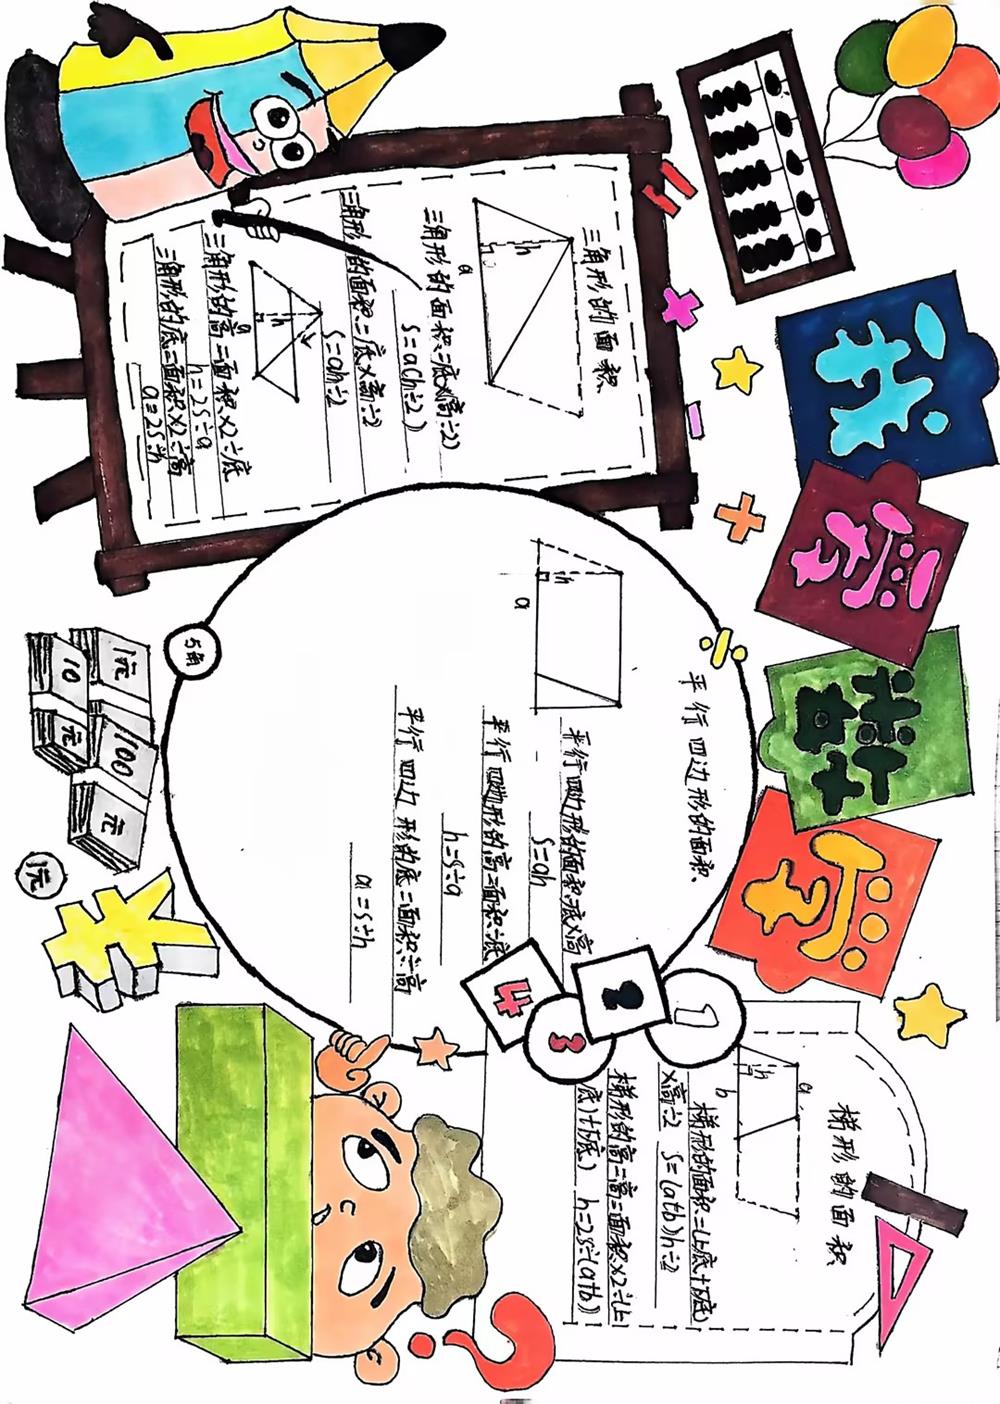 我学数学
三角形的面积
h
a
三角形的面积=底×高÷2)
S=a(h÷2)
三角形的面积=底×高÷2
S=ah÷2
h
a
三角形的高=面积×2÷底
h=2S÷a
三角形的底=面积×2÷高
a=2S÷h
平行四边形的面积
h
a
平行四边形的面积=底×高
S=ah
平行四边形的高=面积÷底
h=S÷a
平行四边形的底=面积÷高
a=S÷h
梯形的面积
a
h
b
梯形的面积=(上底+下底)
×高÷2 S=(a+b)h÷2
梯形的高=高=面积×2÷(上
底)+下底) h=2S÷(a+b))
1
2
3
4
5角
1元
10元
100元
1元